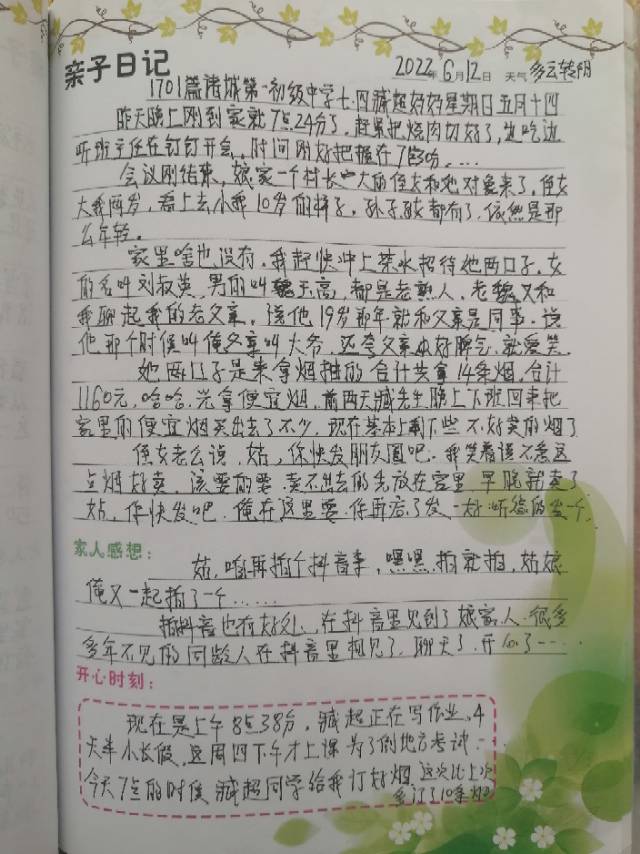 亲子日记
2022年6月12日 天气 多云转阴
1701篇诸城第一初级中学七.四臧超好好星期日五月十四
昨天晚上刚到家就7点24分了，赶紧把烧肉切好了，边吃边
听班主任在钉钉开会，时间刚好把握在7点30分.....
会议刚结束，娘家一个村长大的侄女和她对象来了，侄女
大我两岁，看上去小我10岁的样子，孙子孩都有了，依然是那
么年轻。
家里啥也没有，我赶快冲上茶水招待她两口子，女
的名叫刘淑英，男的叫魏玉高，都是老熟人，老魏又和
我聊起我的老父亲，说他19岁那年就和父亲是同事，说
他那个时候叫俺父亲叫大爷，还夸父亲好脾气，就爱笑
她两口子是来拿烟摊的合计共拿14条烟，合计
1160元，哈哈，光拿便宜烟，前两天臧先生晚上下班回来把
家里的便宜烟买出去了不少，现在基本上剩下些不好卖的烟了
侄女老么说，姑，你快发朋友圈吧，我笑着说不急这
点烟好卖，该要的要，卖不出去的先放在家里早晚就卖了
姑，你快发吧，俺在这里要你再忘了发一好听话的发个
家人感想：
姑，咱再拍个抖音李，嘿嘿，拍就拍，姑娘
俺又一起拍了一个......
拍抖音也有好处，在抖音里见到了娘家人，很多
多年不见的同龄人在抖音里相见了，聊天了，开心了....
开心时刻：
现在是上午8点38分，臧超正在写作业，4
天半小长假，这周四下午才上课为了倒地方考试...
今天7点的时候，臧超同学给我订好烟，这次比上次
多订了10条烟